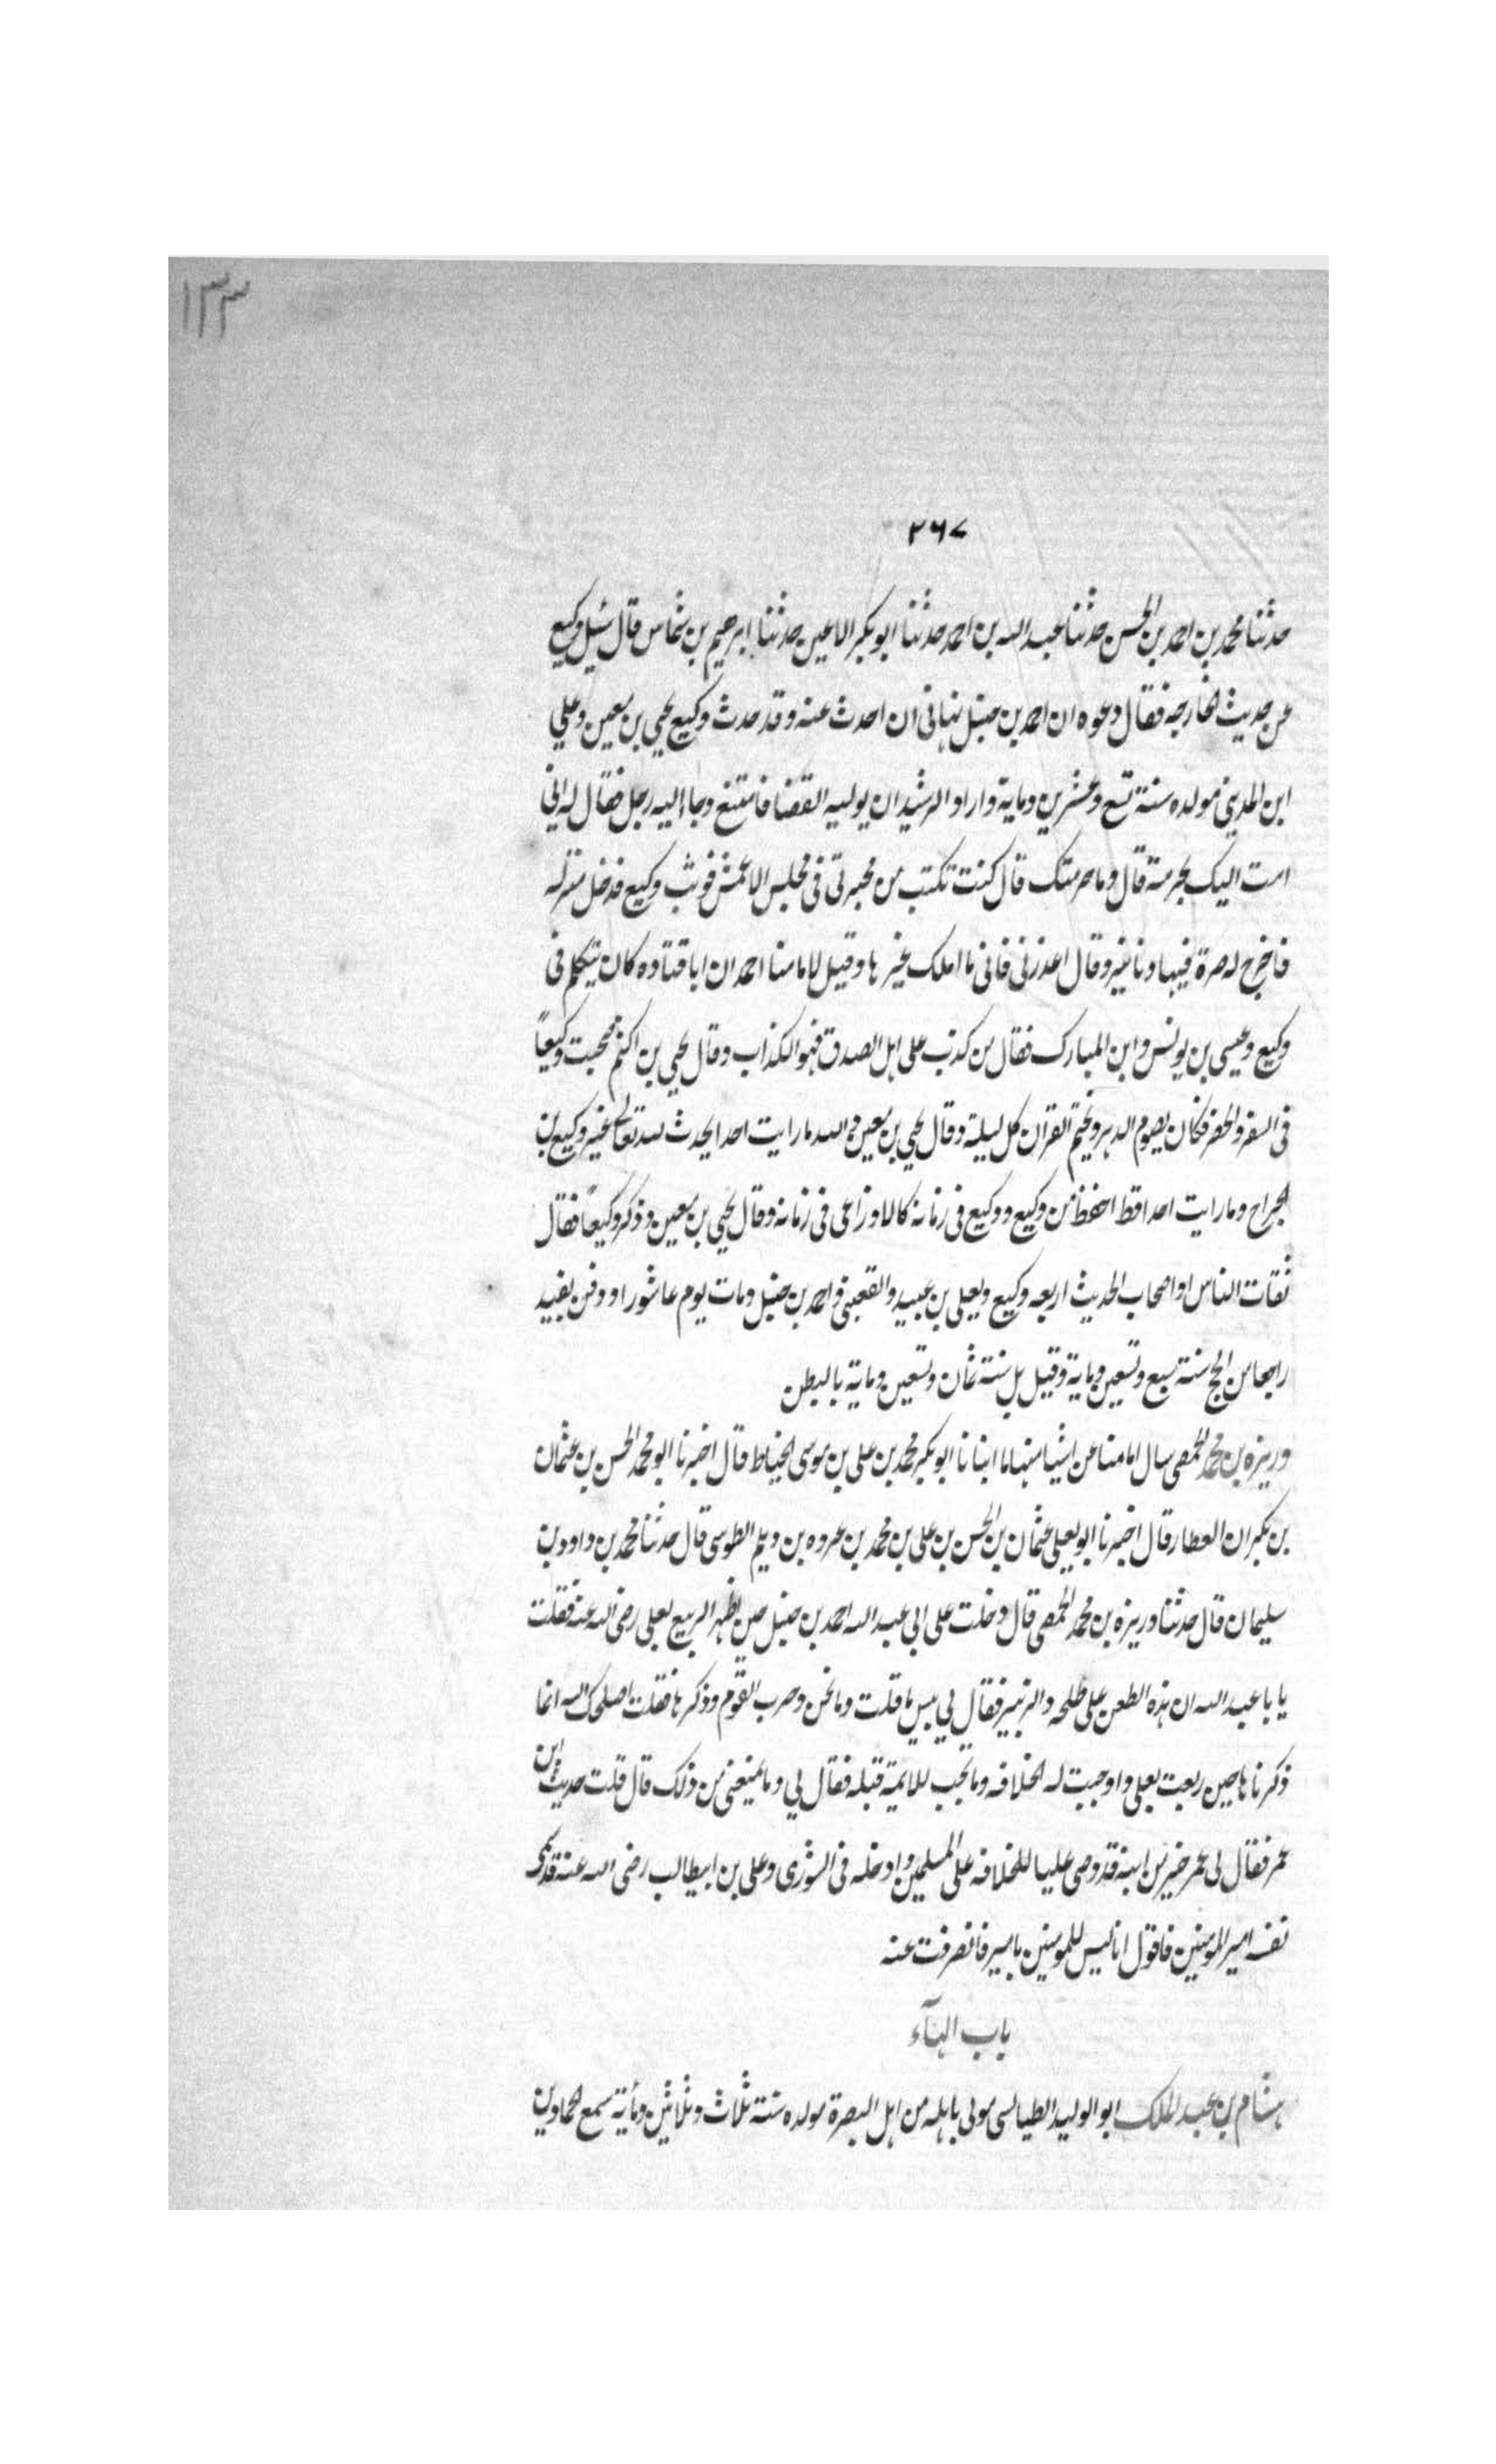 ١٣٣
٢٦٧
حدثنا محمد بن احمد بن الحسن حدثنا عبد الله بن احمد حدثنا ابو بكر الاعين حدثنا ابرهيم بن شماس قال سئل وكيع
عن حديث لخارجه فقال دعوه ان احمد بن حنبل نهانى ان احدث عنه وقد حدث وكيع يحيى بن معين وعلي
ابن المديني مولده سنة تسع وعشرين وماية واراد الرشيد ان يوليه القضا فامتنع وجاء اليه رجل فقال له اني
امت اليك بحرمة قال وما حرمتك قال كنت تكتب من محبرتى فى مجلس الاعمش فوثب وكيع فدخل منزله
فاخرج له صرة فيها دنانير وقال اعذرنى فانى ما املك غيرها وقيل لامامنا احمد ان ابا قتاده كان يتكلم فى
وكيع وعيسى بن يونس وابن المبارك فقال من كذب على اهل الصدق فهو الكذاب وقال يحيى بن اكثم صحبت وكيعاً
فى السفر والحضر فكان يصوم الدهر ويختم القران كل ليلة وقال يحيى بن معين والله ما رايت احدا يحدث لله تعالى غير وكيع بن
الجراح وما رايت احدا قط احفظ من وكيع ووكيع فى زمانه كالاوزاعى فى زمانه وقال يحيى بن معين وذكر وكيعاً فقال
ثقات الناس او اصحاب الحديث اربعه وكيع ويعلى بن عبيد والقعنبى واحمد بن حنبل ومات يوم عاشورا ودفن بفيد
راجعا من الحج سنة سبع وتسعين وماية وقيل بل سنة ثمان وتسعين وماية بالبطن
وريزه بن محمد الحمصي سال امامنا عن اشيا منها ما انبانا ابو بكر محمد بن على بن موسى الخياط قال اخبرنا ابو محمد الحسن بن عثمان
بن بكران العطار قال اخبرنا ابو يعلى عثمان بن الحسن بن على بن محمد بن عروه بن ديلم الطوسى قال حدثنا محمد بن داود بن
سليمان قال حدثنا وريزه بن محمد الحمصى قال دخلت على ابي عبد الله احمد بن حنبل حين اظهر التربيع بعلى رضى الله عنه فقلت
يا با عبد الله ان هذه الطعن على طلحه والزبير فقال لي بيس ما قلت وما نحن وحرب القوم وذكرها فقلت اصلحك الله انما
ذكرناها حين ربعت بعلى واوجبت له الخلافه وما يجب للايمة قبله فقال لي وما يمنعنى من ذلك قال قلت حديث ابن
عمر فقال لى عمر خير من ابنه قد رضى عليا للخلافه على المسلمين وادخله فى الشورى وعلى بن ابيطالب رضى الله عنه قد سمى
نفسه امير المومنين فاقول انا ليس للمومنين بامير فانصرفت عنه
باب الهآء
هشام بن عبد الملك ابو الوليد الطيالسى مولى باهله من اهل البصرة مولده سنة ثلاث وثلاثين ومأية سمع الحمادين